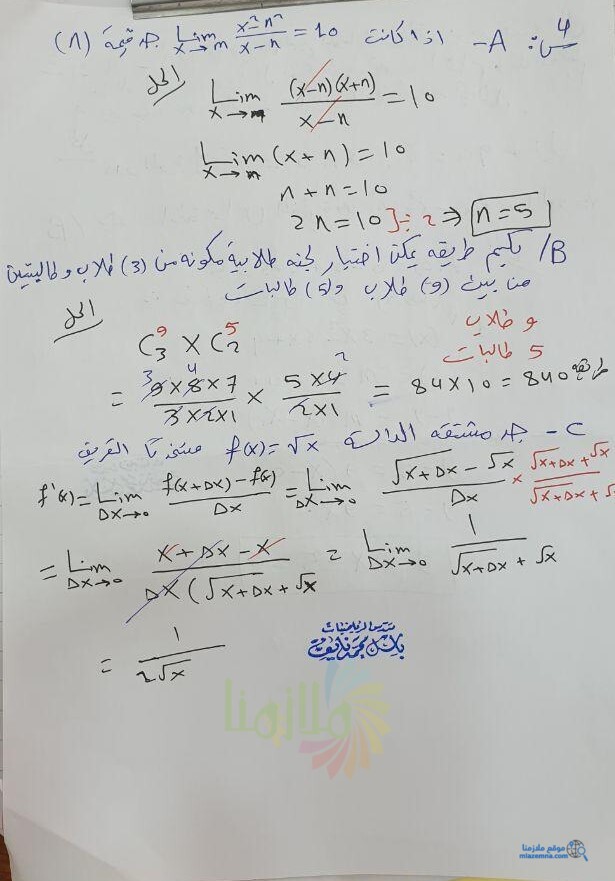 س4: A- اذا كانت Lim x→n (x²-n²)/(x-n) = 10 جد قيمة (n)
الحل
Lim x→n (x-n)(x+n)/(x-n) = 10
Lim x→n (x+n) = 10
n+n=10
2n=10]÷2 ⇒ n=5
B/ بكم طريقه يمكن اختيار لجنه طلابية مكونه من (3) طلاب وطالبتين
من بين (9) طلاب و(5) طالبات
الحل
9 طلاب
C⁹₃ × C⁵₂
5 طالبات
= (9×8×7)/(3×2×1) × (5×4)/(2×1) = 84×10 = 840 طريقة
C- جد مشتقه الدالة f(x)=√x مستخدماً التعريف
f'(x)= Lim Δx→0 (f(x+Δx)-f(x))/Δx = Lim Δx→0 (√x+Δx - √x)/Δx × (√x+Δx + √x)/(√x+Δx + √x)
= Lim Δx→0 (x+Δx-x)/(Δx(√x+Δx + √x) = Lim Δx→0 1/(√x+Δx + √x)
= 1/(2√x)
مدرس الرياضيات
ملازمنا
موقع ملازمنا
mlazemna.com